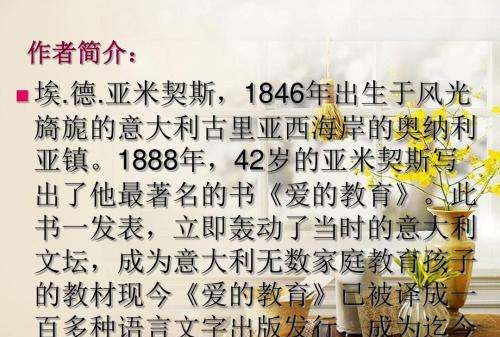 作者简介：
埃.德.亚米契斯，1846年出生于风光
旖旎的意大利古里亚西海岸的奥纳利
亚镇。1888年，42岁的亚米契斯写
出了他最著名的书《爱的教育》。此
书一发表，立即轰动了当时的意大利
文坛，成为意大利无数家庭教育孩子
的教材现今《爱的教育》已被译成一
百多种语言文字出版发行，成为迄今